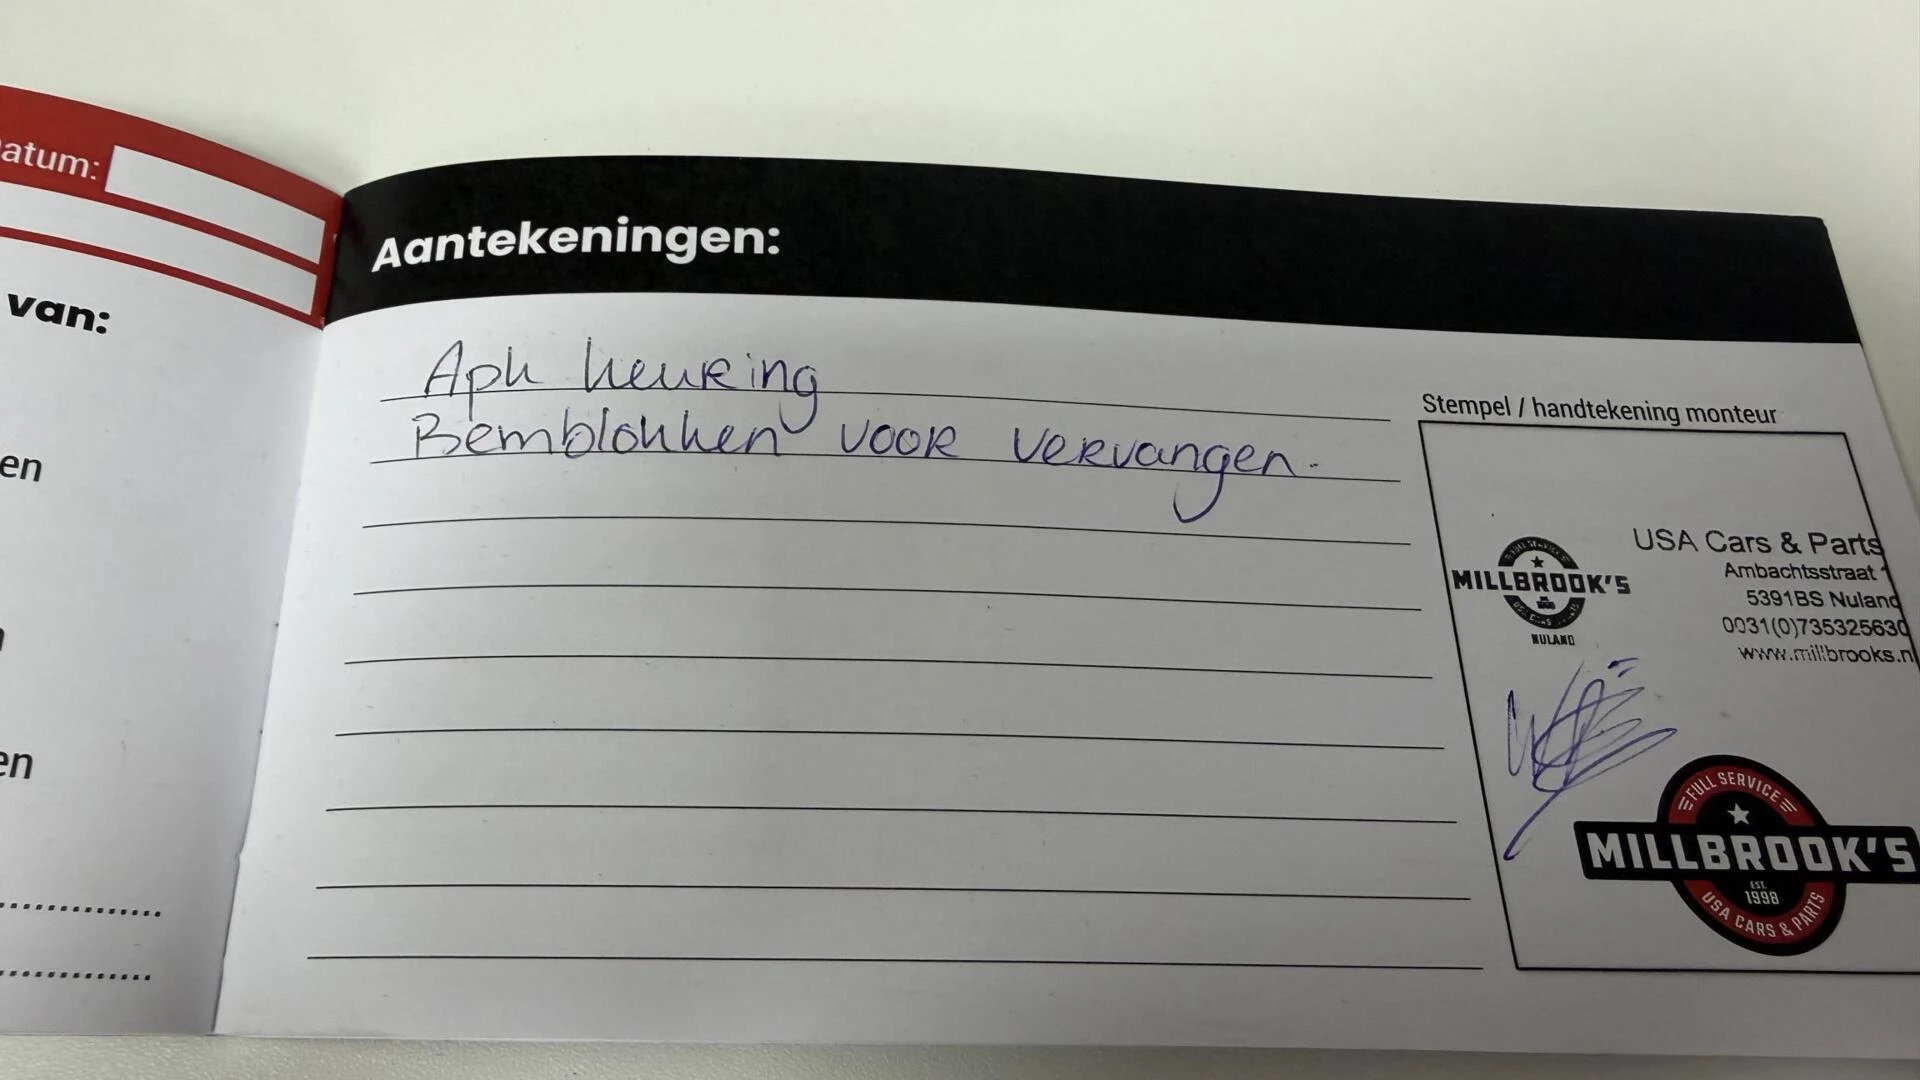 atum:
van:
en
en
Aantekeningen:
Apk keuring
Remblokken voor vervangen.
Stempel / handtekening monteur
USA Cars & Parts
Ambachtsstraat
5391BS Nuland
0031(0)735325630
www.millbrooks.n
FULL SERVICE
MILLBROOK'S
USA CARS & PARTS
NULAND
FULL SERVICE
MILLBROOK'S
EST.
1998
USA CARS & PARTS